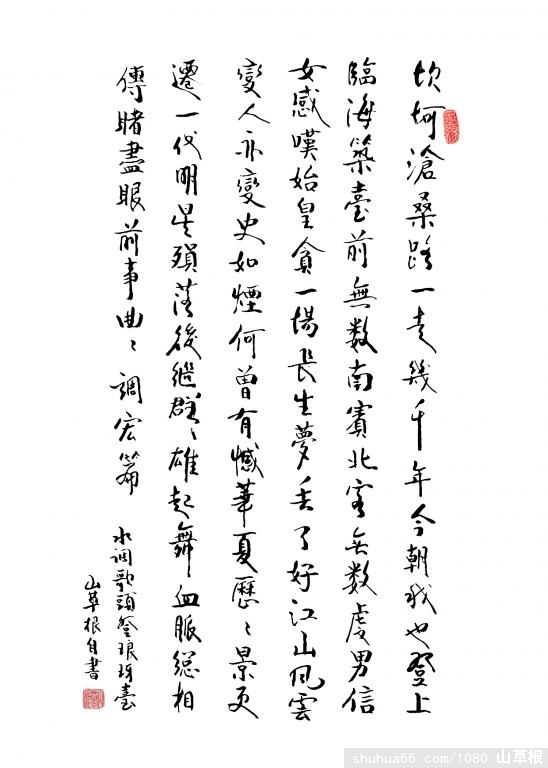 坎坷滄桑路一走幾千年今朝我也登上
臨海築臺前無数南賓北客無数虔男信
女感嘆始皇貪一場長生夢丢了好江山风雲
變人亦變史如煙何曾有憾華夏歷〻景更
遷一代明星殞落後繼群〻雄起舞血脈總相
傳睹盡眼前事曲〻調宏篇
水调歌頭登琅琊臺
山草根自書
shuhua66.com/1080 山草根